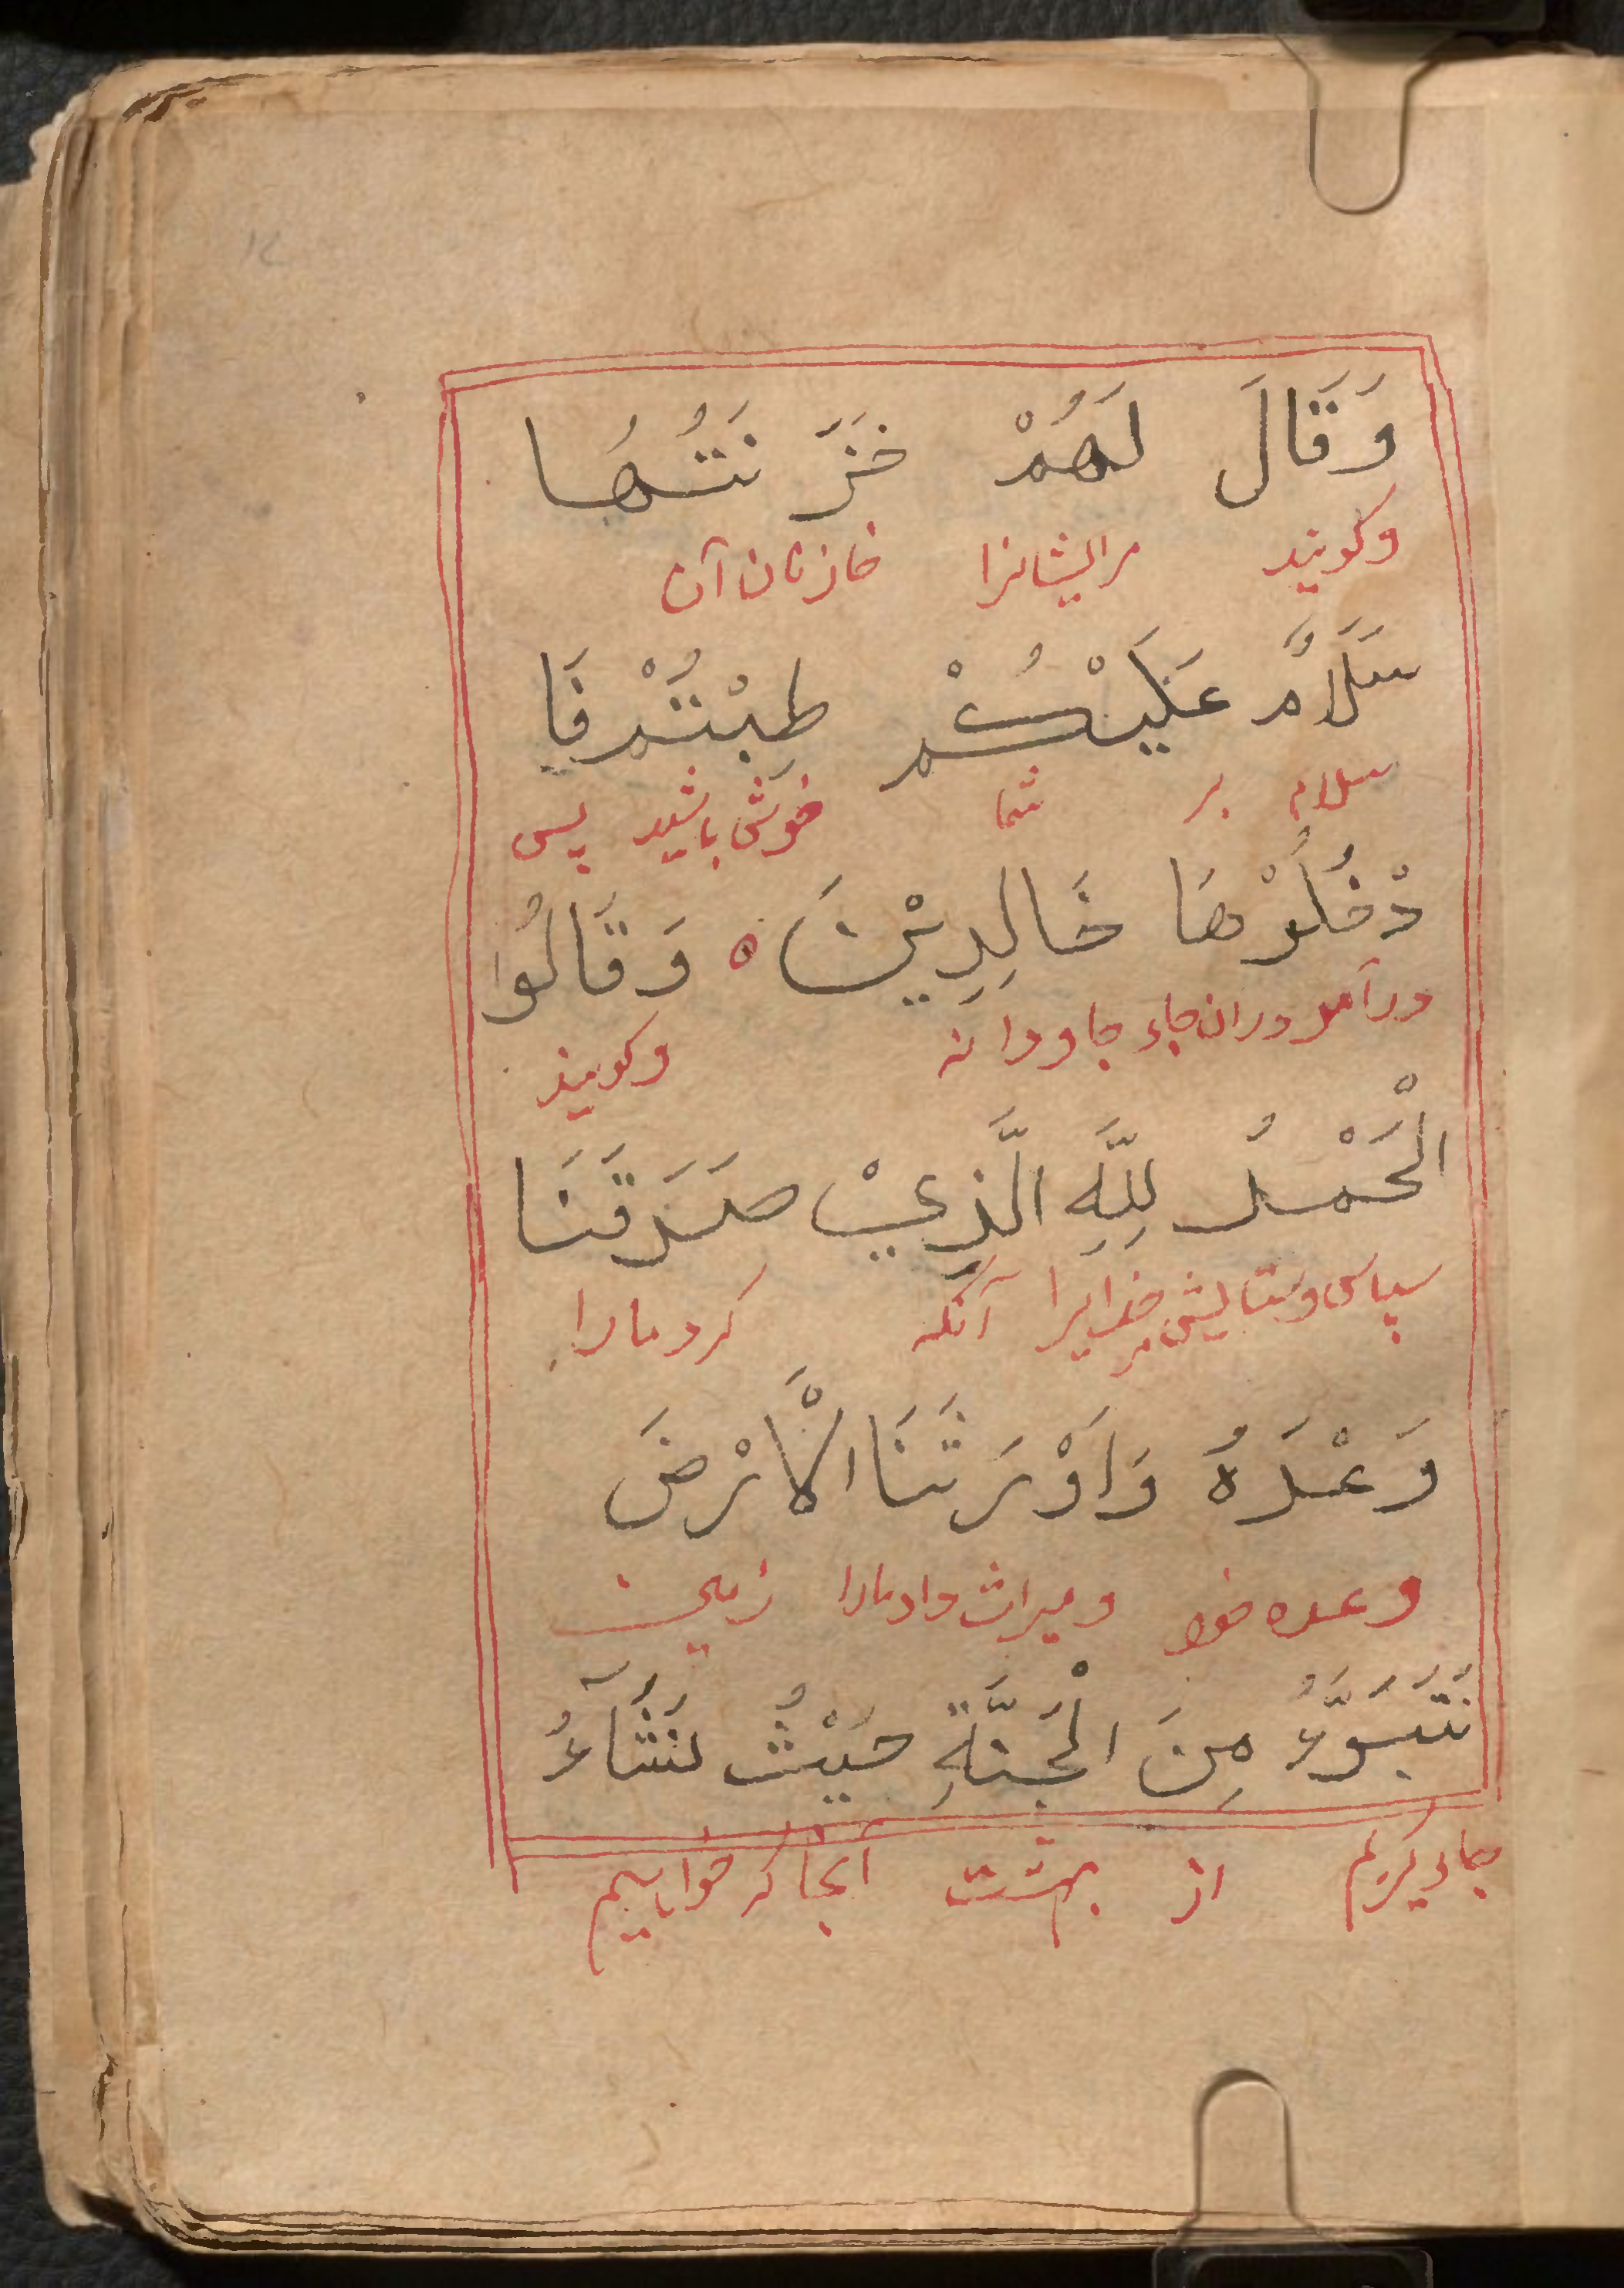 وَقَالَ لَهُمْ خَزَ نَتُهَا
وکویند مرایشانرا خازنان آن
سَلَامٌ عَلَيْكُمْ طِبْتُمْ فَا
سلام بر شما خوش باشید پس
دْخُلُوْهَا خَالِدِيْنَ ه وَقَالُوا
درآمد دران جاء جاودانه وکویند
الْحَمْدُ لِلَّهِ الَّذِيْ صَدَقَنَا
سپاس وستایش مر خدایرا آنکه کرد مارا
وَعْدَهُ وَاَوْرَثَنَا الْاَرْضَ
وعده خود ومیراث داد مارا زمین
نَتَبَوَّءُ مِنَ الْجَنَّةِ حَيْثُ نَشَآءُ
جاویکریم از بهشت آنجا که خواهیم